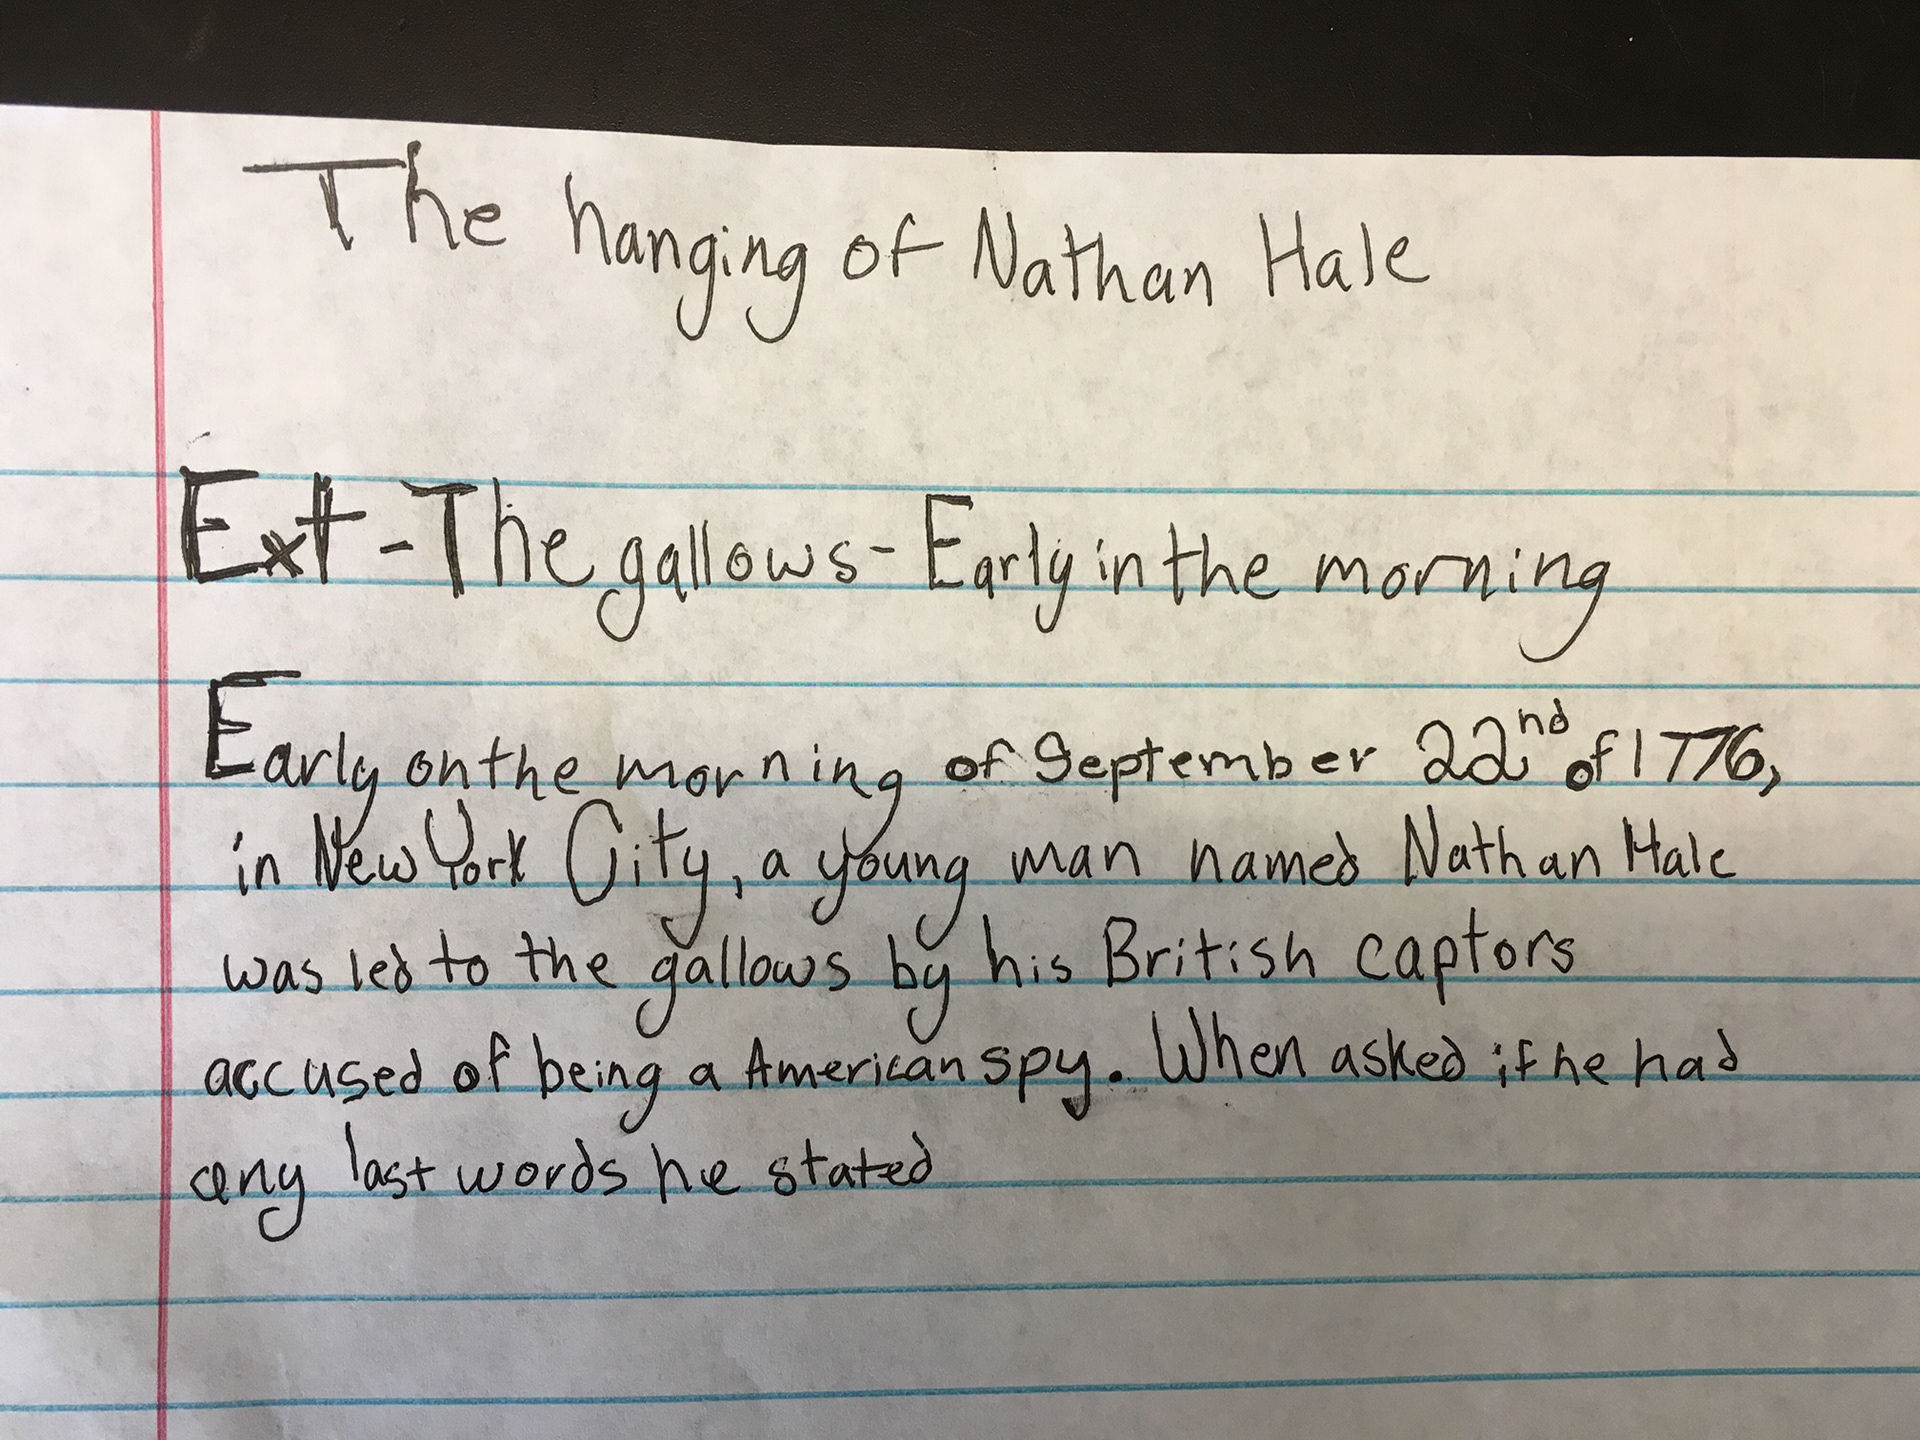 The hanging of Nathan Hale
Ext - The gallows - Early in the morning
Early on the morning of September 22nd of 1776,
in New York City, a young man named Nathan Hale
was led to the gallows by his British captors
accused of being a American spy. When asked if he had
any last words he stated